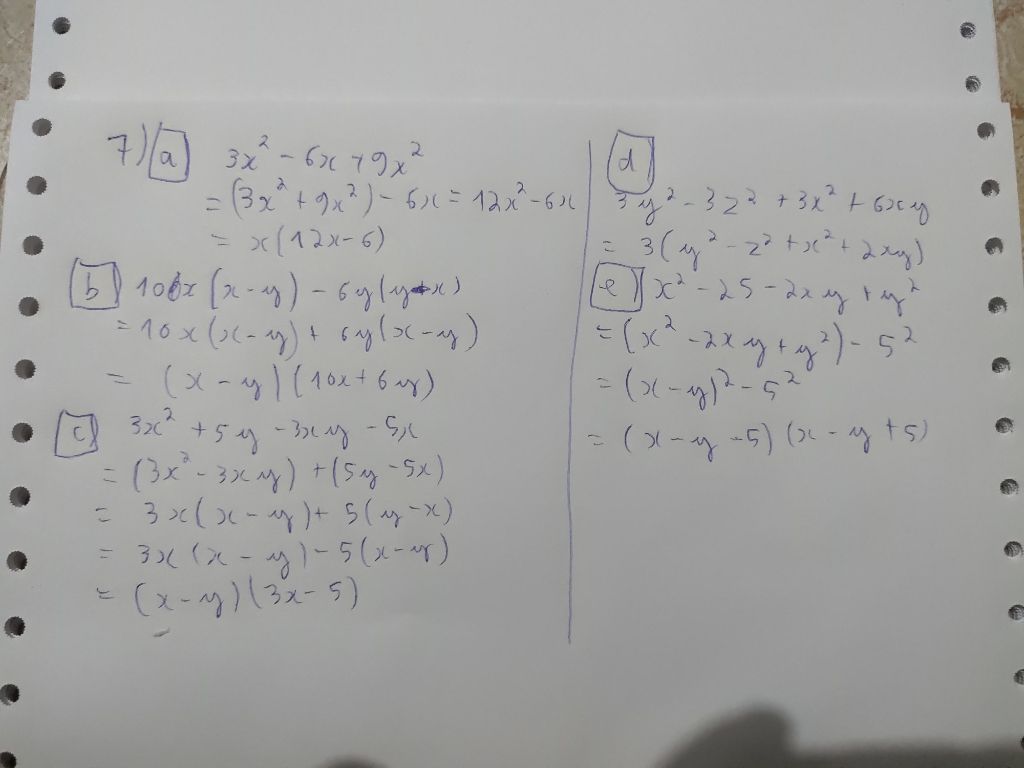 7) a 3x² - 6x + 9x²
= (3x² + 9x²) - 6x = 12x² - 6x
= x(12x - 6)
b 10x(x - y) - 6y(y - x)
= 10x(x - y) + 6y(x - y)
= (x - y)(10x + 6y)
c 3x² + 5y - 3xy - 5x
= (3x² - 3xy) + (5y - 5x)
= 3x(x - y) + 5(y - x)
= 3x(x - y) - 5(x - y)
= (x - y)(3x - 5)
d
3y² - 3z² + 3x² + 6xy
= 3(y² - z² + x² + 2xy)
e x² - 25 - 2xy + y²
= (x² - 2xy + y²) - 5²
= (x - y)² - 5²
= (x - y - 5)(x - y + 5)